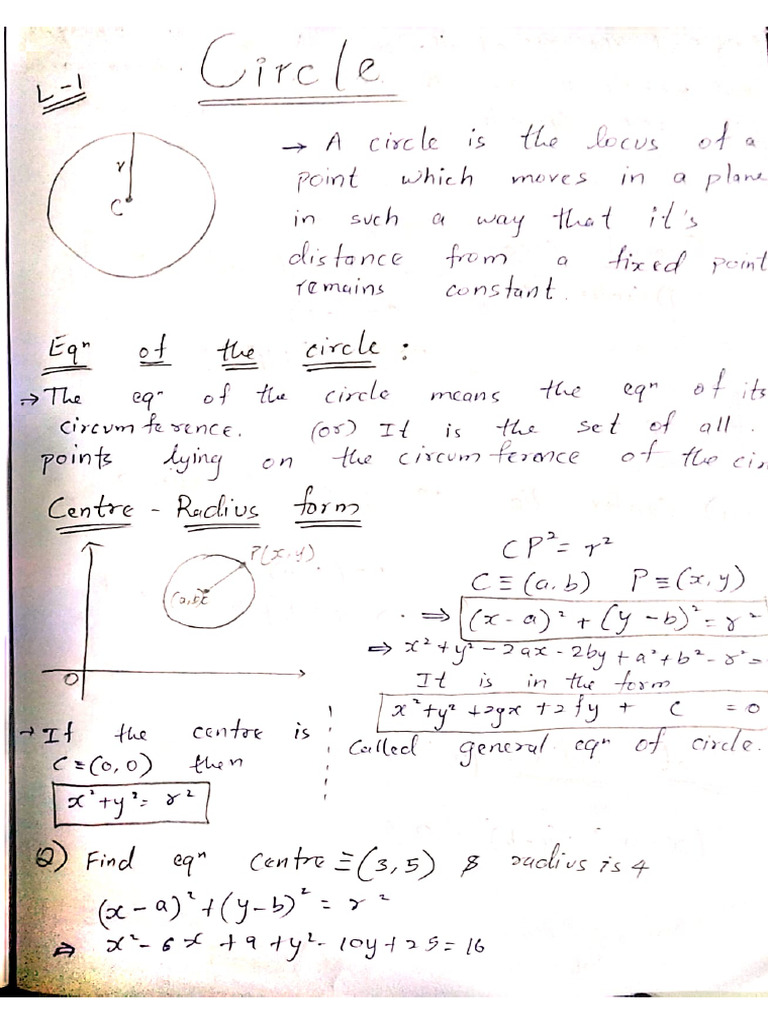 Circle
L-1
r
C
→ A circle is the locus of a
point which moves in a plane
in such a way that it's
distance from a fixed point
remains constant.
Eqⁿ of the circle :
→ The eqⁿ of the circle means the eqⁿ of its
circumference. (or) It is the set of all
points lying on the circumference of the cir
Centre - Radius form
P(x,y)
(a,b)C
O
CP² = r²
C ≡ (a,b) P ≡ (x,y)
⇒ (x-a)² + (y-b)² = r²
⇒ x²+y²-2ax-2by+a²+b²-r²=
It is in the form
x²+y²+2gx+2fy+ c =0
Called general eqⁿ of circle.
→ If the centre is
C ≡ (0,0) then
x²+y²= r²
Q) Find eqⁿ centre ≡ (3,5) & radius is 4
(x-a)²+(y-b)² = r²
⇒ x²-6x+9+y²-10y+25=16